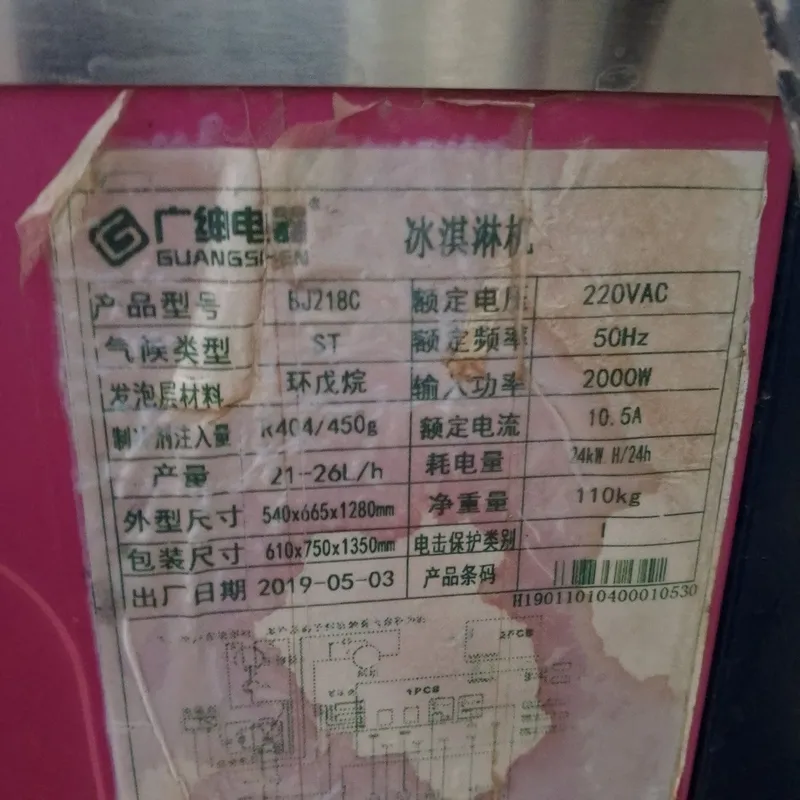 广绅电器® 冰淇淋机
GUANGSHEN
产品型号 BJ218C 额定电压 220VAC
气候类型 ST 额定频率 50Hz
发泡层材料 环戊烷 输入功率 2000W
制冷剂注入量 R404/450g 额定电流 10.5A
产量 21-26L/h 耗电量 24kW H/24h
外型尺寸 540x665x1280mm 净重量 110kg
包装尺寸 610x750x1350mm 电击保护类别 I
出厂日期 2019-05-03 产品条码
H19011010400010530
2PCB
1PCB